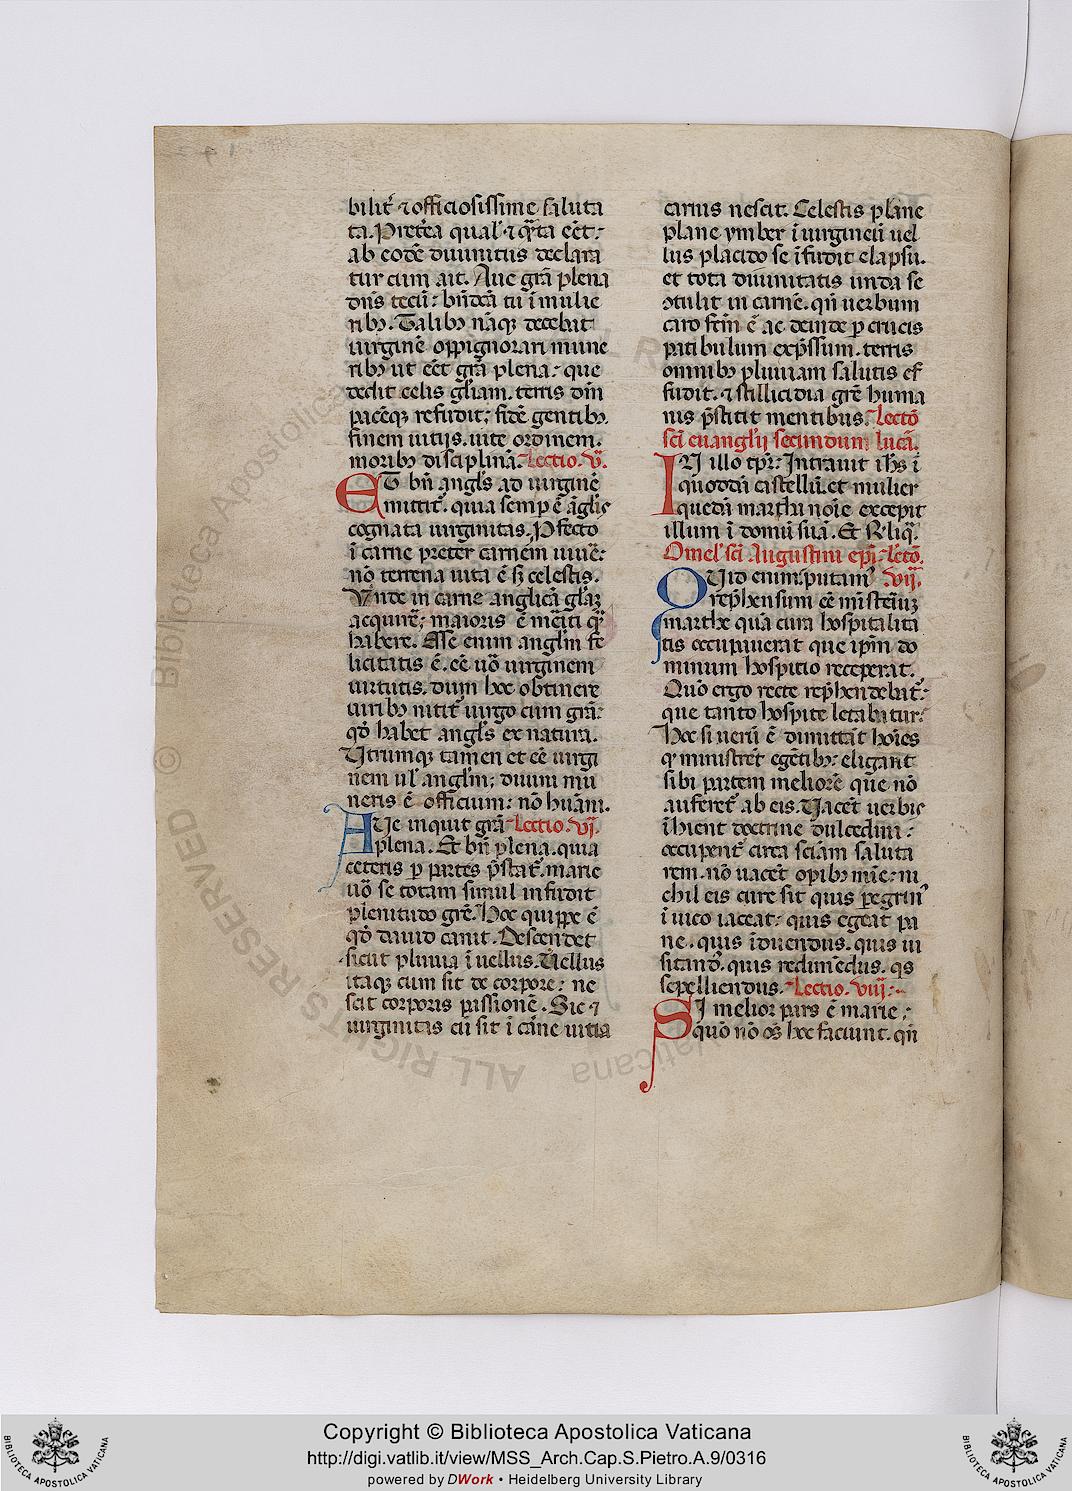 bilit᷑ ⁊ officiosissime saluta
ta. Preterea qual᷑ ⁊ qᷓta eēt:
ab eodē diuinitus declara
tur cum ait. Aue grā plena
dn̄s tecū: bn̄dcā tu ī mulie
ribꝫ. Talibꝫ nāqꝫ decebat
uirginē oppignorari mune
ribꝫ ut eēt grā plena: que
dedit celis gl̄iam. terris dm̄
pacēqꝫ refudit; fidē gentibꝫ.
finem uitijs. uite ordinem.
moribꝫ disciplinā. Lectio. v̄.
ET bn̄ angls̄ ad uirginē
mittit᷑. quia semp ē āglis̄
cognata uirginitas. Pfecto
ī carne preter carnem uiuē᷑:
nō terrena uita ē sꝫ celestis.
Vnde in carne anglicā gl̄aꝫ
acquirē᷑; maioris ē mēiti qᷓ
habere. Esse enim anglm̄ fe
licitatis ē. eē uō uirginem
uirtutis. dum hoc obtinere
uiribꝫ nitit᷑ uirgo cum grā:
qd̄ habet angls̄ ex natura.
Utrumqꝫ tamen et eē uirgi
nem ul᷑ anglm̄; diuini mu
neris ē officium: nō huām.
AUe inquit grā Lectio. vj̄.
plena. Et bn̄ plena. quia
ceteris p partes pr̄stat᷑. marie
uō se totam simul infudit
plenitudo grē. Hoc quippe ē
qd̄ dauid canit. Descendet
sicut pluuia ī uellus. Uellus
itaqꝫ cum sit de corpore: ne
scit corporis passionē. Sic ⁊
uirginitas cū sit ī cāne uitia
carnis nescit. Celestis plane
plane ymber ī uirgineū uel
lus placido se īfudit elapsu.
et tota diuinitatis unda se
ↄtulit in carnē. qn̄ uerbum
caro fcm̄ ē ac deinde p crucis
patibulum expr̄ssum. terris
omnibꝫ pluuiam salutis ef
fudit. ⁊ stillicidia grē huma
nis pr̄stitit mentibus. Lectō
sc̄i euanglij secundum lucā.
IN illo tp̄r: Intrauit ih̄s ī
quoddā castellū. et mulier
quedā martha noīe excepit
illum ī domū suā. Et Rliq̄.
Omel᷑ sc̄i Augustini epī. lctō.
QUid enim putam᷑ vij̄.
repr̄hensum eē mīsteriuꝫ
marthe quā cura hospitalita
tis occupauerat que ipm̄ do
minum hospicio receperat.
Quō ergo recte repr̄hendebat᷑:
que tanto hospite letabatur:
Hoc si uerū ē dimittāt hoīes
qͥ ministrēt egētibꝫ: eligant
sibi partem meliorē que nō
auferet᷑ ab eis. Uacēt uerbis
īhient doctrine dulcedini:
occupent᷑ circa sciām saluta
rem. nō uacēt opibꝫ mīe: ni
chil eis cure sit quis peregrin᷑
ī uico iaceat: quis egeat pa
ne. quis īduendus. quis ui
sitand᷑. quis redimēdus. qs
sepelliendus. Lectio. viij̄:
SI melior pars ē marie;
quō nō oēs hoc faciunt. qn̄
Copyright © Biblioteca Apostolica Vaticana
http://digi.vatlib.it/view/MSS_Arch.Cap.S.Pietro.A.9/0316
powered by DWork • Heidelberg University Library